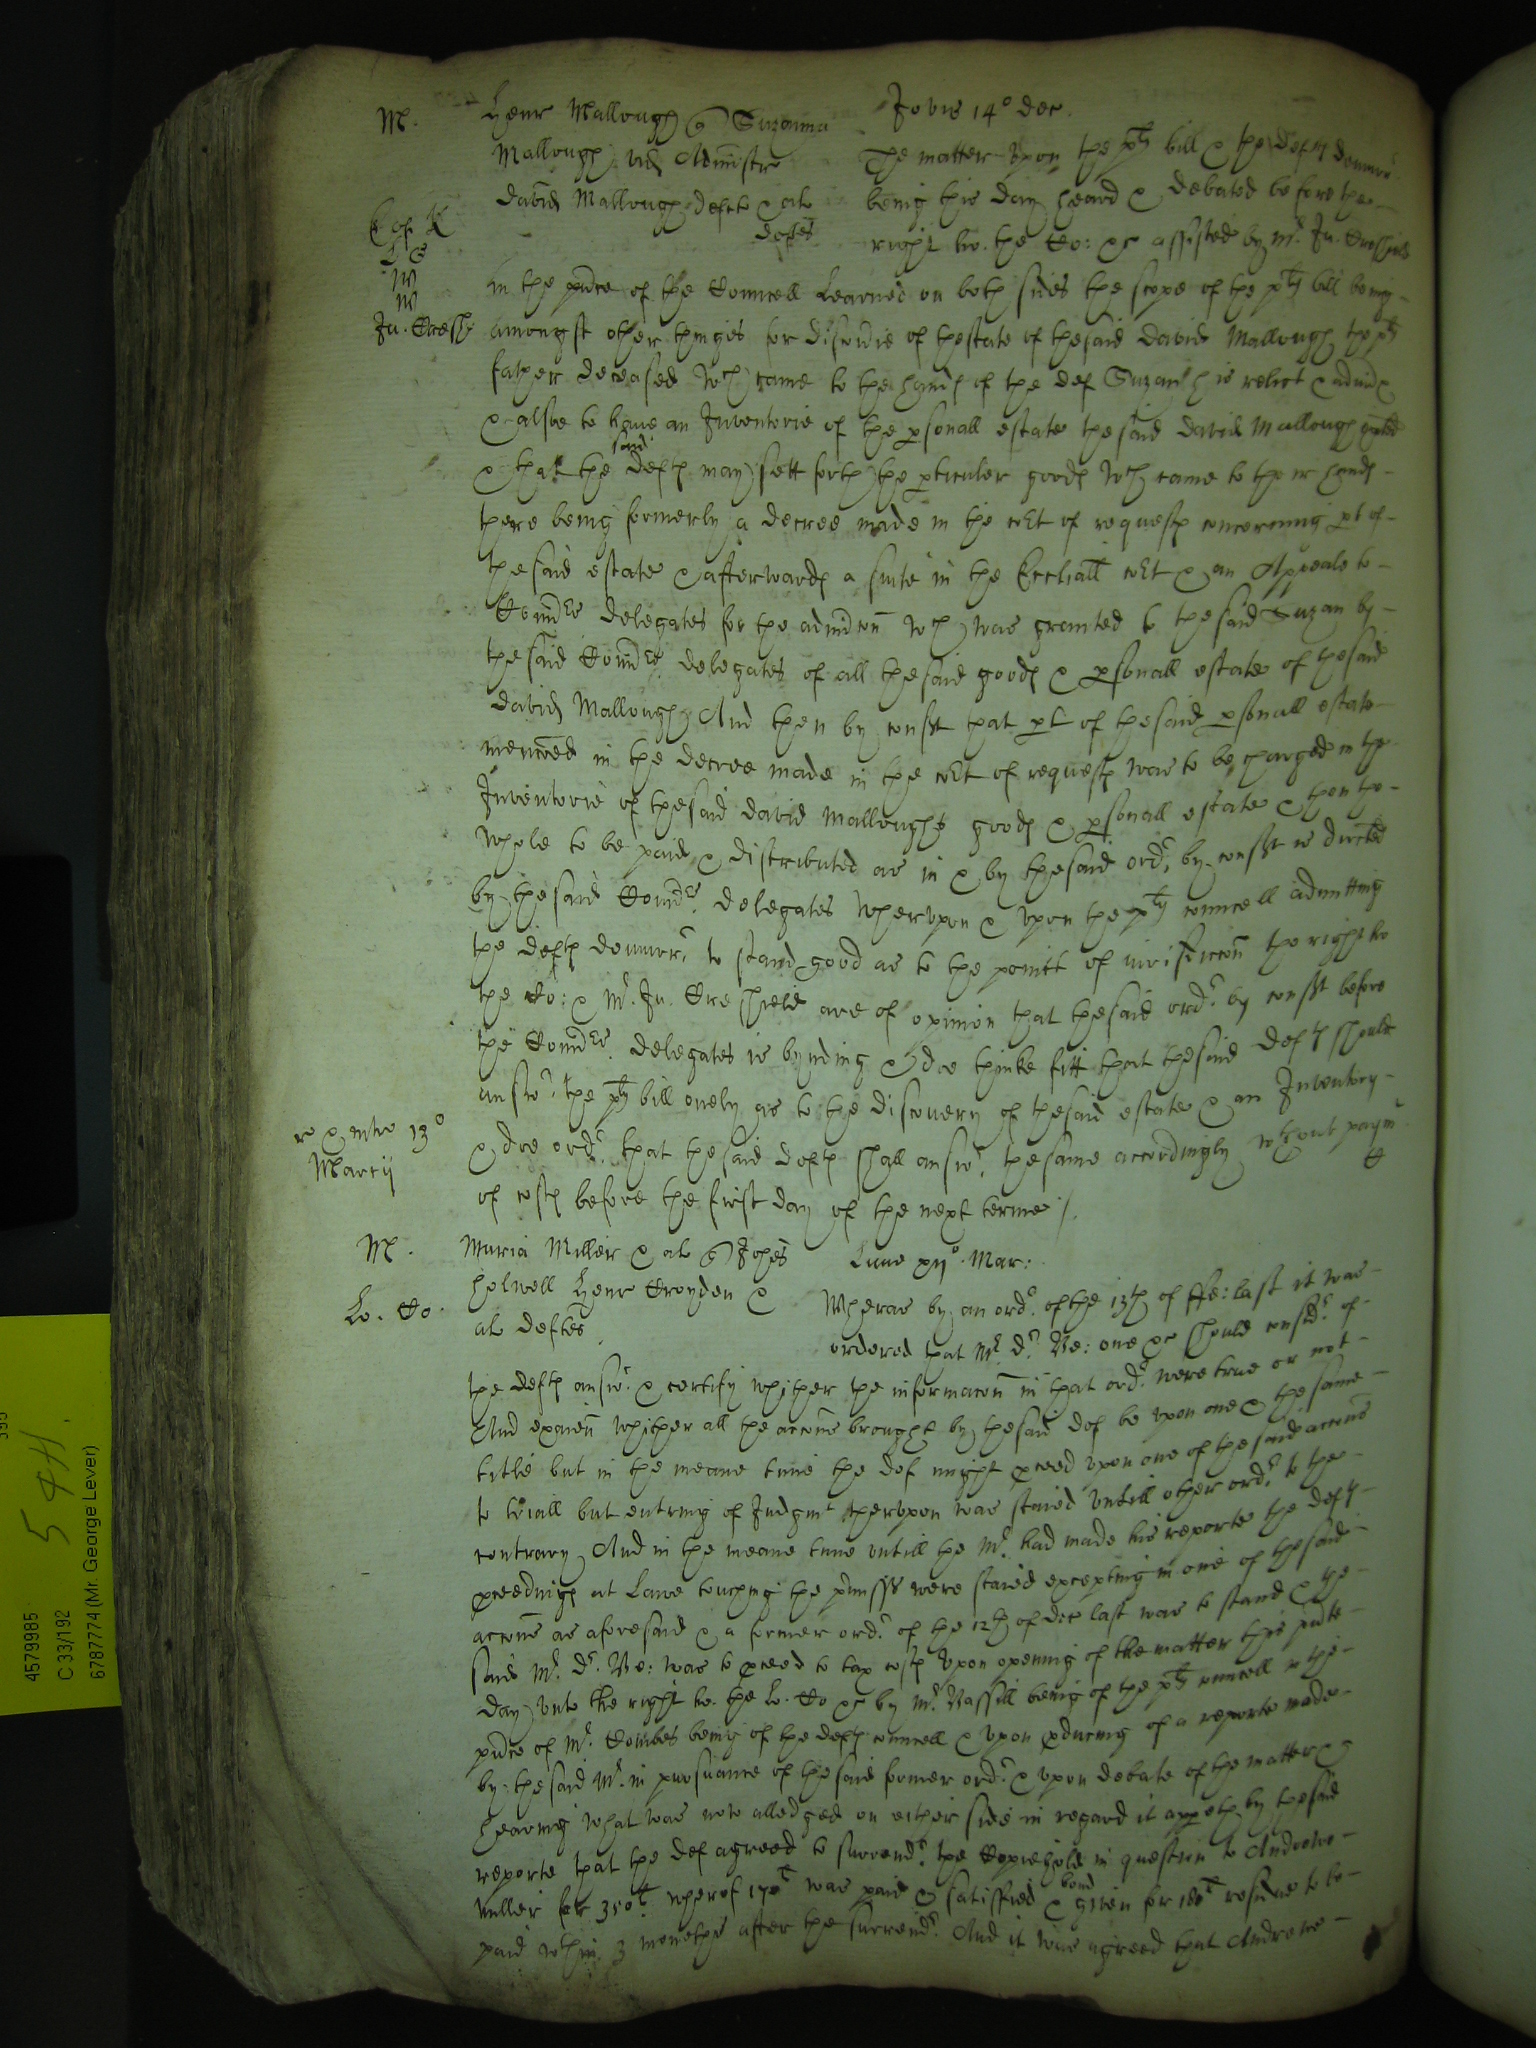 M. Henr Mallough Suzanna Jovis 14° dec.
Mallough vid Administr The matter upon the plts bill & the defts demurr
David Mallough defct & al being this day heard & debated before the
defts right ho: the Co: &c assisted by Mr. Ju. Creshield
in the pnce of the Councell Learned on both sides the scope of the plts bill being
Ju. Cresh: amongst other thinges for discovie of thestate of thesaid David Mallough the plts
father deceased wch came to the hands of the def Suzan his relict & admx
& alsoe to have an Inventorie of the psonall estate thesaid David Mallough
& that the said defts may sett forth the pticuler goods wch came to their hands
there being formerly a decree made in the cort of requests concerning pt of
the said estate & afterwards a suite in the Eccliall cort & an Appeale to
Comrs delegates for the admcon wch was granted to thesaid Suzan by
thesaid Comrs delegates of all thesaid goods & psonall estate of thesaid
David Mallough And then by consent that pt of thesaid psonall estate
mencoed in the decree made in the cort of requests was to be charged in the
Inventorie of thesaid David Malloughs goods & psonall estate & then the
whole to be paid & distributed as in & by thesaid ordr by consent is directed
by thesaid Comrs delegates wherupon & upon the plts councell admitting
the defts demurr to stand good as to the point of jurisdiccon the right ho
the Co: & Mr. Ju. Creshield are of opinion that thesaid ordr by consent before
the Comrs delegates is bynding & doe thinke fitt that thesaid defts should
answr the plts bill onely as to the discovery of thesaid estate & an Inventory
re & intr 13° & doe ordr that thesaid defts shall answr thesame accordingly wthout paymt
Marcij of costs before the first day of the next terme /.
M. Maria Miller & al Johes Lune xij° Mar:
holwell Henr Croyden & Wheras by an ordr of the 13th of ffe: last it was
Lo. Co. al deftes ordered that Mr. Dr. Ve: one &c should considr of
the defts answr & certify whither the informacon in that ordr were true or not
And examin whither all the accons brought by thesaid def be upon one & thesame
title but in the meane time the def might pceed upon one of thesaid accons
to triall but entring of Judgmt therupon was staied untill other ordr to the
contrary And in the meane time untill the Mr. had made his reporte the defts
pceedings at Lawe touching the pmisses were staied excepting in one of thesaid
accons as aforesaid & a former ordr of the 12th of dec last was to stand & the
said Mr. Dr. Ve: was to pceed to tax costs Upon opening of the matter this pnte
day unto the right ho. the Lo. Co &c by Mr. Vassill being of the plts councell in the
pnce of Mr. Combes being of the defts councell & upon pducing of a reporte made
by thesaid Mr. in pursuance of thesaid former ordr & upon debate of the matter &
hearing what was now alledged on either side in regard it appeth by thesaid
reporte that the def agreed to surrendr the Copiehold in question to Andrewe
Miller for 350li wherof 170li was paid & satisfied & bond given for 180li residue to be
paid wthin 3 moneths after the surrendr And it was agreed that Andrewe
4579985
C 33/192
6787774 (Mr. George Lever)